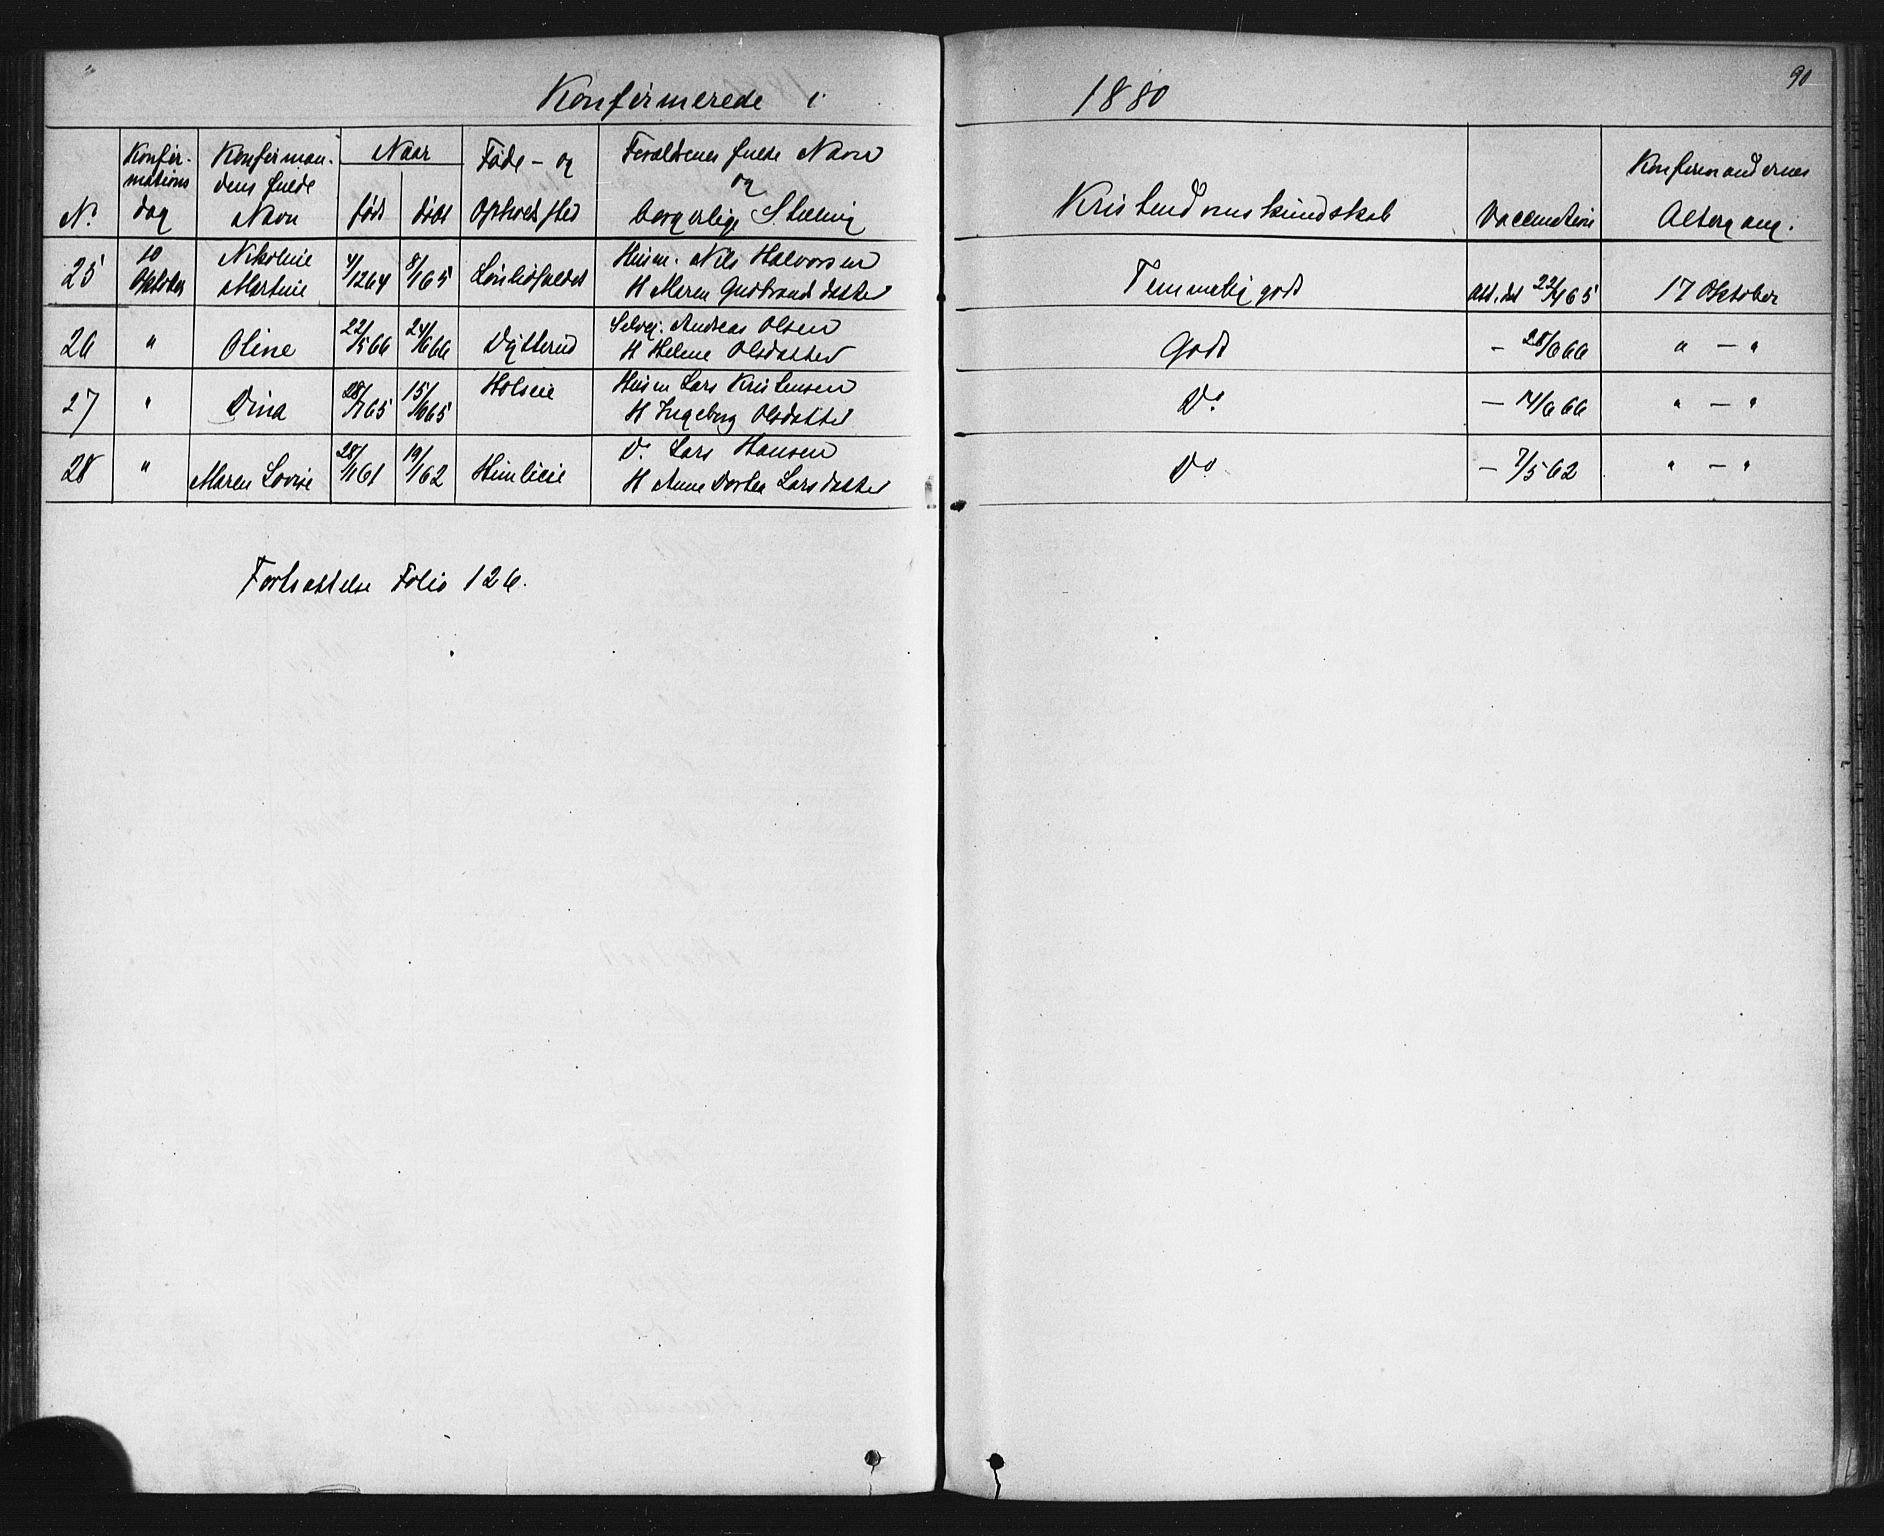 Konfirmerede i 1880
90
No
Konfir-
mations
dag
Konfirman-
dens fulde
Navn
Naar
født
døbt
Føde- og
Opholdssted
Forældrenes fulde Navn
og
borgerlige Stilling
Kristendomskundskab
Vaccination
Konfirmandernes
Altergang.
25 10 Oktober Nikoline Martine 4/12 64 8/1 65
Husm. Nils Halvorsen
H Maren Gudbrandsdatter
Temmelig godt Att. dat 22/ 65 17 Oktober
26 " Oline 22/5 66 24/6 66 Dytterud
Selvej. Andreas Olsen
H Helene Olsdatter
Godt — 28/6 66 " — "
27 " Dina 28/ 65 15/ 65 Holseie
Husm Lars Kristensen
H Ingeborg Olsdatter
Do — /6 66 " — "
28 " Maren Lovise 28/11 61 19/1 62
Do Lars Hansen
H Anne Dortea Larsdatter
Do — 7/5 62 " — "
Fortsættelse Folio 126.